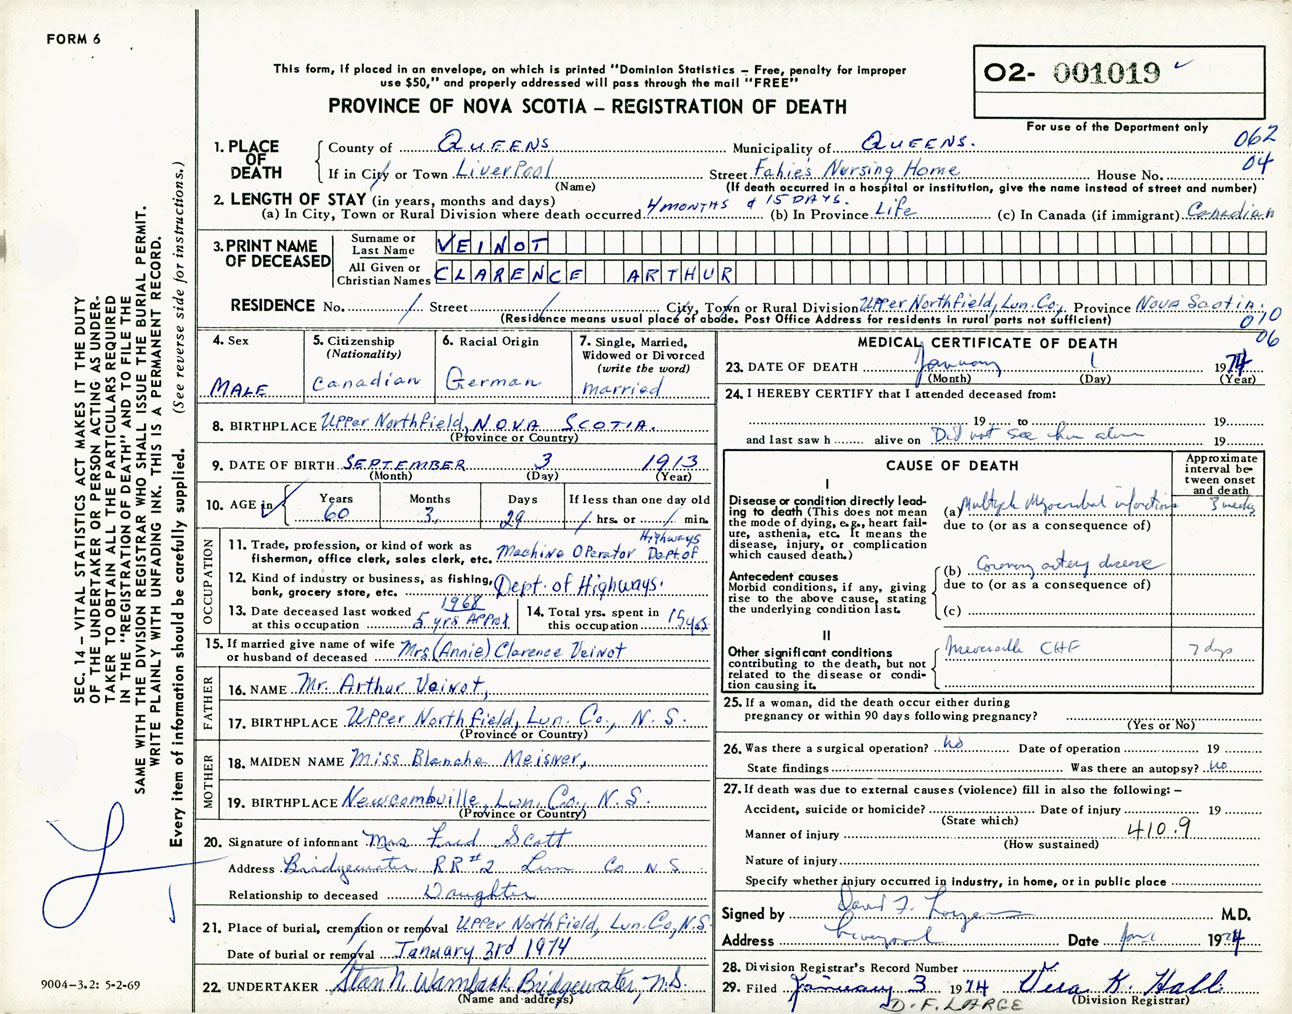 FORM 6
This form, if placed in an envelope, on which is printed "Dominion Statistics – Free, penalty for improper
use $50," and properly addressed will pass through the mail "FREE"
PROVINCE OF NOVA SCOTIA – REGISTRATION OF DEATH
02- 001019
For use of the Department only
062
04
1. PLACE OF DEATH
County of QUEENS Municipality of QUEENS.
If in City or Town Liverpool Street Fahie's Nursing Home House No.
(Name) (If death occurred in a hospital or institution, give the name instead of street and number)
2. LENGTH OF STAY (in years, months and days)
(a) In City, Town or Rural Division where death occurred 4 MONTHS & 15 DAYS. (b) In Province Life (c) In Canada (if immigrant) Canadian
3. PRINT NAME OF DECEASED
Surname or Last Name VEINOT
All Given or Christian Names CLARENCE ARTHUR
RESIDENCE No. / Street / City, Town or Rural Division Upper Northfield, Lun. Co., Province Nova Scotia.
(Residence means usual place of abode. Post Office Address for residents in rural parts not sufficient)
010
06
4. Sex
MALE
5. Citizenship
(Nationality)
Canadian
6. Racial Origin
German
7. Single, Married,
Widowed or Divorced
(write the word)
married
8. BIRTHPLACE Upper Northfield, NOVA SCOTIA.
(Province or Country)
9. DATE OF BIRTH SEPTEMBER 3 1913
(Month) (Day) (Year)
10. AGE in Years Months Days If less than one day old
60 3 29 / hrs. or / min.
OCCUPATION
11. Trade, profession, or kind of work as
fisherman, office clerk, sales clerk, etc. Machine Operator Dept of Highways
12. Kind of industry or business, as fishing,
bank, grocery store, etc. Dept. of Highways.
13. Date deceased last worked 1968
at this occupation 5 yrs APPROX
14. Total yrs. spent in
this occupation 15 yrs
15. If married give name of wife
or husband of deceased Mrs (Annie) Clarence Veinot
FATHER
16. NAME Mr. Arthur Veinot,
17. BIRTHPLACE Upper Northfield, Lun. Co., N.S.
(Province or Country)
MOTHER
18. MAIDEN NAME Miss Blanche Meisner,
19. BIRTHPLACE Newcombville, Lun. Co., N.S.
(Province or Country)
20. Signature of informant Mrs Fred Scott
Address Bridgewater RR #2 Lun Co N S
Relationship to deceased Daughter
21. Place of burial, cremation or removal Upper Northfield, Lun. Co, N.S.
Date of burial or removal January 3rd 1974
22. UNDERTAKER Stan N. Wamback Bridgewater, N.S.
(Name and address)
MEDICAL CERTIFICATE OF DEATH
23. DATE OF DEATH January 1 1974
(Month) (Day) (Year)
24. I HEREBY CERTIFY that I attended deceased from:
19 to 19
and last saw h alive on Did not see him alive 19
CAUSE OF DEATH
Approximate
interval be-
tween onset
and death
I
Disease or condition directly lead-
ing to death (This does not mean
the mode of dying, e.g., heart fail-
ure, asthenia, etc. It means the
disease, injury, or complication
which caused death.)
(a) Multiple Myocardial infarctions 3 weeks
due to (or as a consequence of)
Antecedent causes
Morbid conditions, if any, giving
rise to the above cause, stating
the underlying condition last.
(b) Coronary artery disease
due to (or as a consequence of)
(c)
II
Other significant conditions
contributing to the death, but not
related to the disease or condi-
tion causing it.
CHF 7 days
25. If a woman, did the death occur either during
pregnancy or within 90 days following pregnancy?
(Yes or No)
26. Was there a surgical operation? No Date of operation 19
State findings Was there an autopsy? No
27. If death was due to external causes (violence) fill in also the following: –
Accident, suicide or homicide? Date of injury 19
(State which)
Manner of injury 410.9
(How sustained)
Nature of injury
Specify whether injury occurred in industry, in home, or in public place
Signed by David F. M.D.
Address Liverpool Date Jan 1 1974
28. Division Registrar's Record Number
29. Filed January 3 1974 Vera K. Hall
(Division Registrar)
D. F. LARGE
SEC. 14 – VITAL STATISTICS ACT MAKES IT THE DUTY
OF THE UNDERTAKER OR PERSON ACTING AS UNDER-
TAKER TO OBTAIN ALL THE PARTICULARS REQUIRED
IN THE "REGISTRATION OF DEATH" AND TO FILE THE
SAME WITH THE DIVISION REGISTRAR WHO SHALL ISSUE THE BURIAL PERMIT.
WRITE PLAINLY WITH UNFADING INK. THIS IS A PERMANENT RECORD.
Every item of information should be carefully supplied. (See reverse side for instructions.)
9004-3.2: 5-2-69